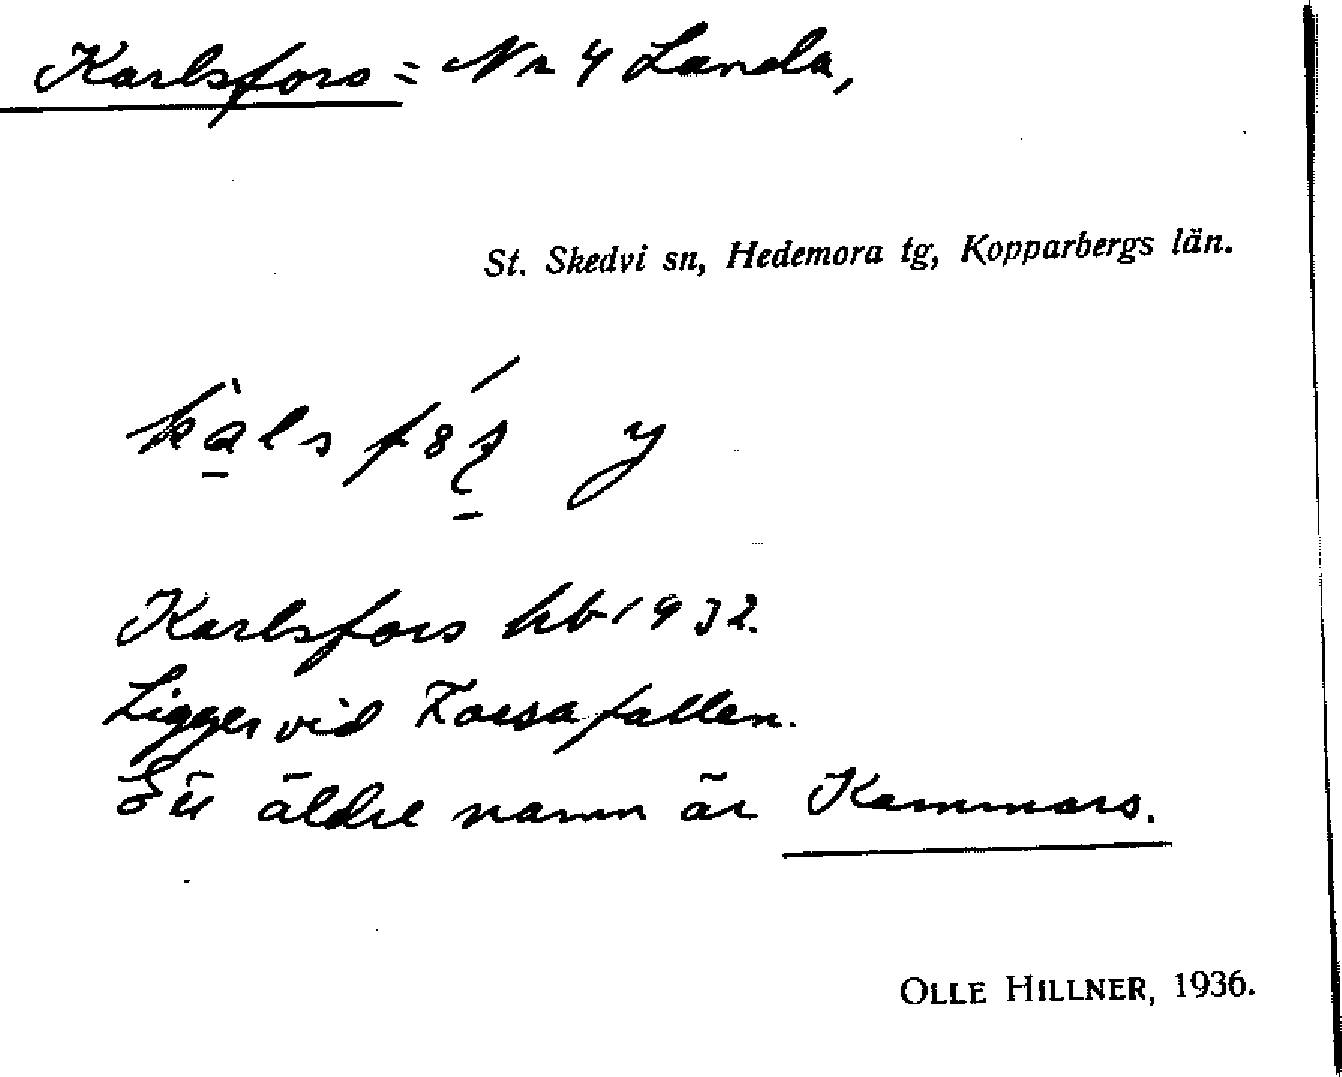 Karlsfors = Nr 4 Landa,
St. Skedvi sn, Hedemora tg, Kopparbergs län.
Karlsfors hb 1932.
Ligger vid Forsafallen.
Ett äldre namn är Kammars.
OLLE HILLNER, 1936.